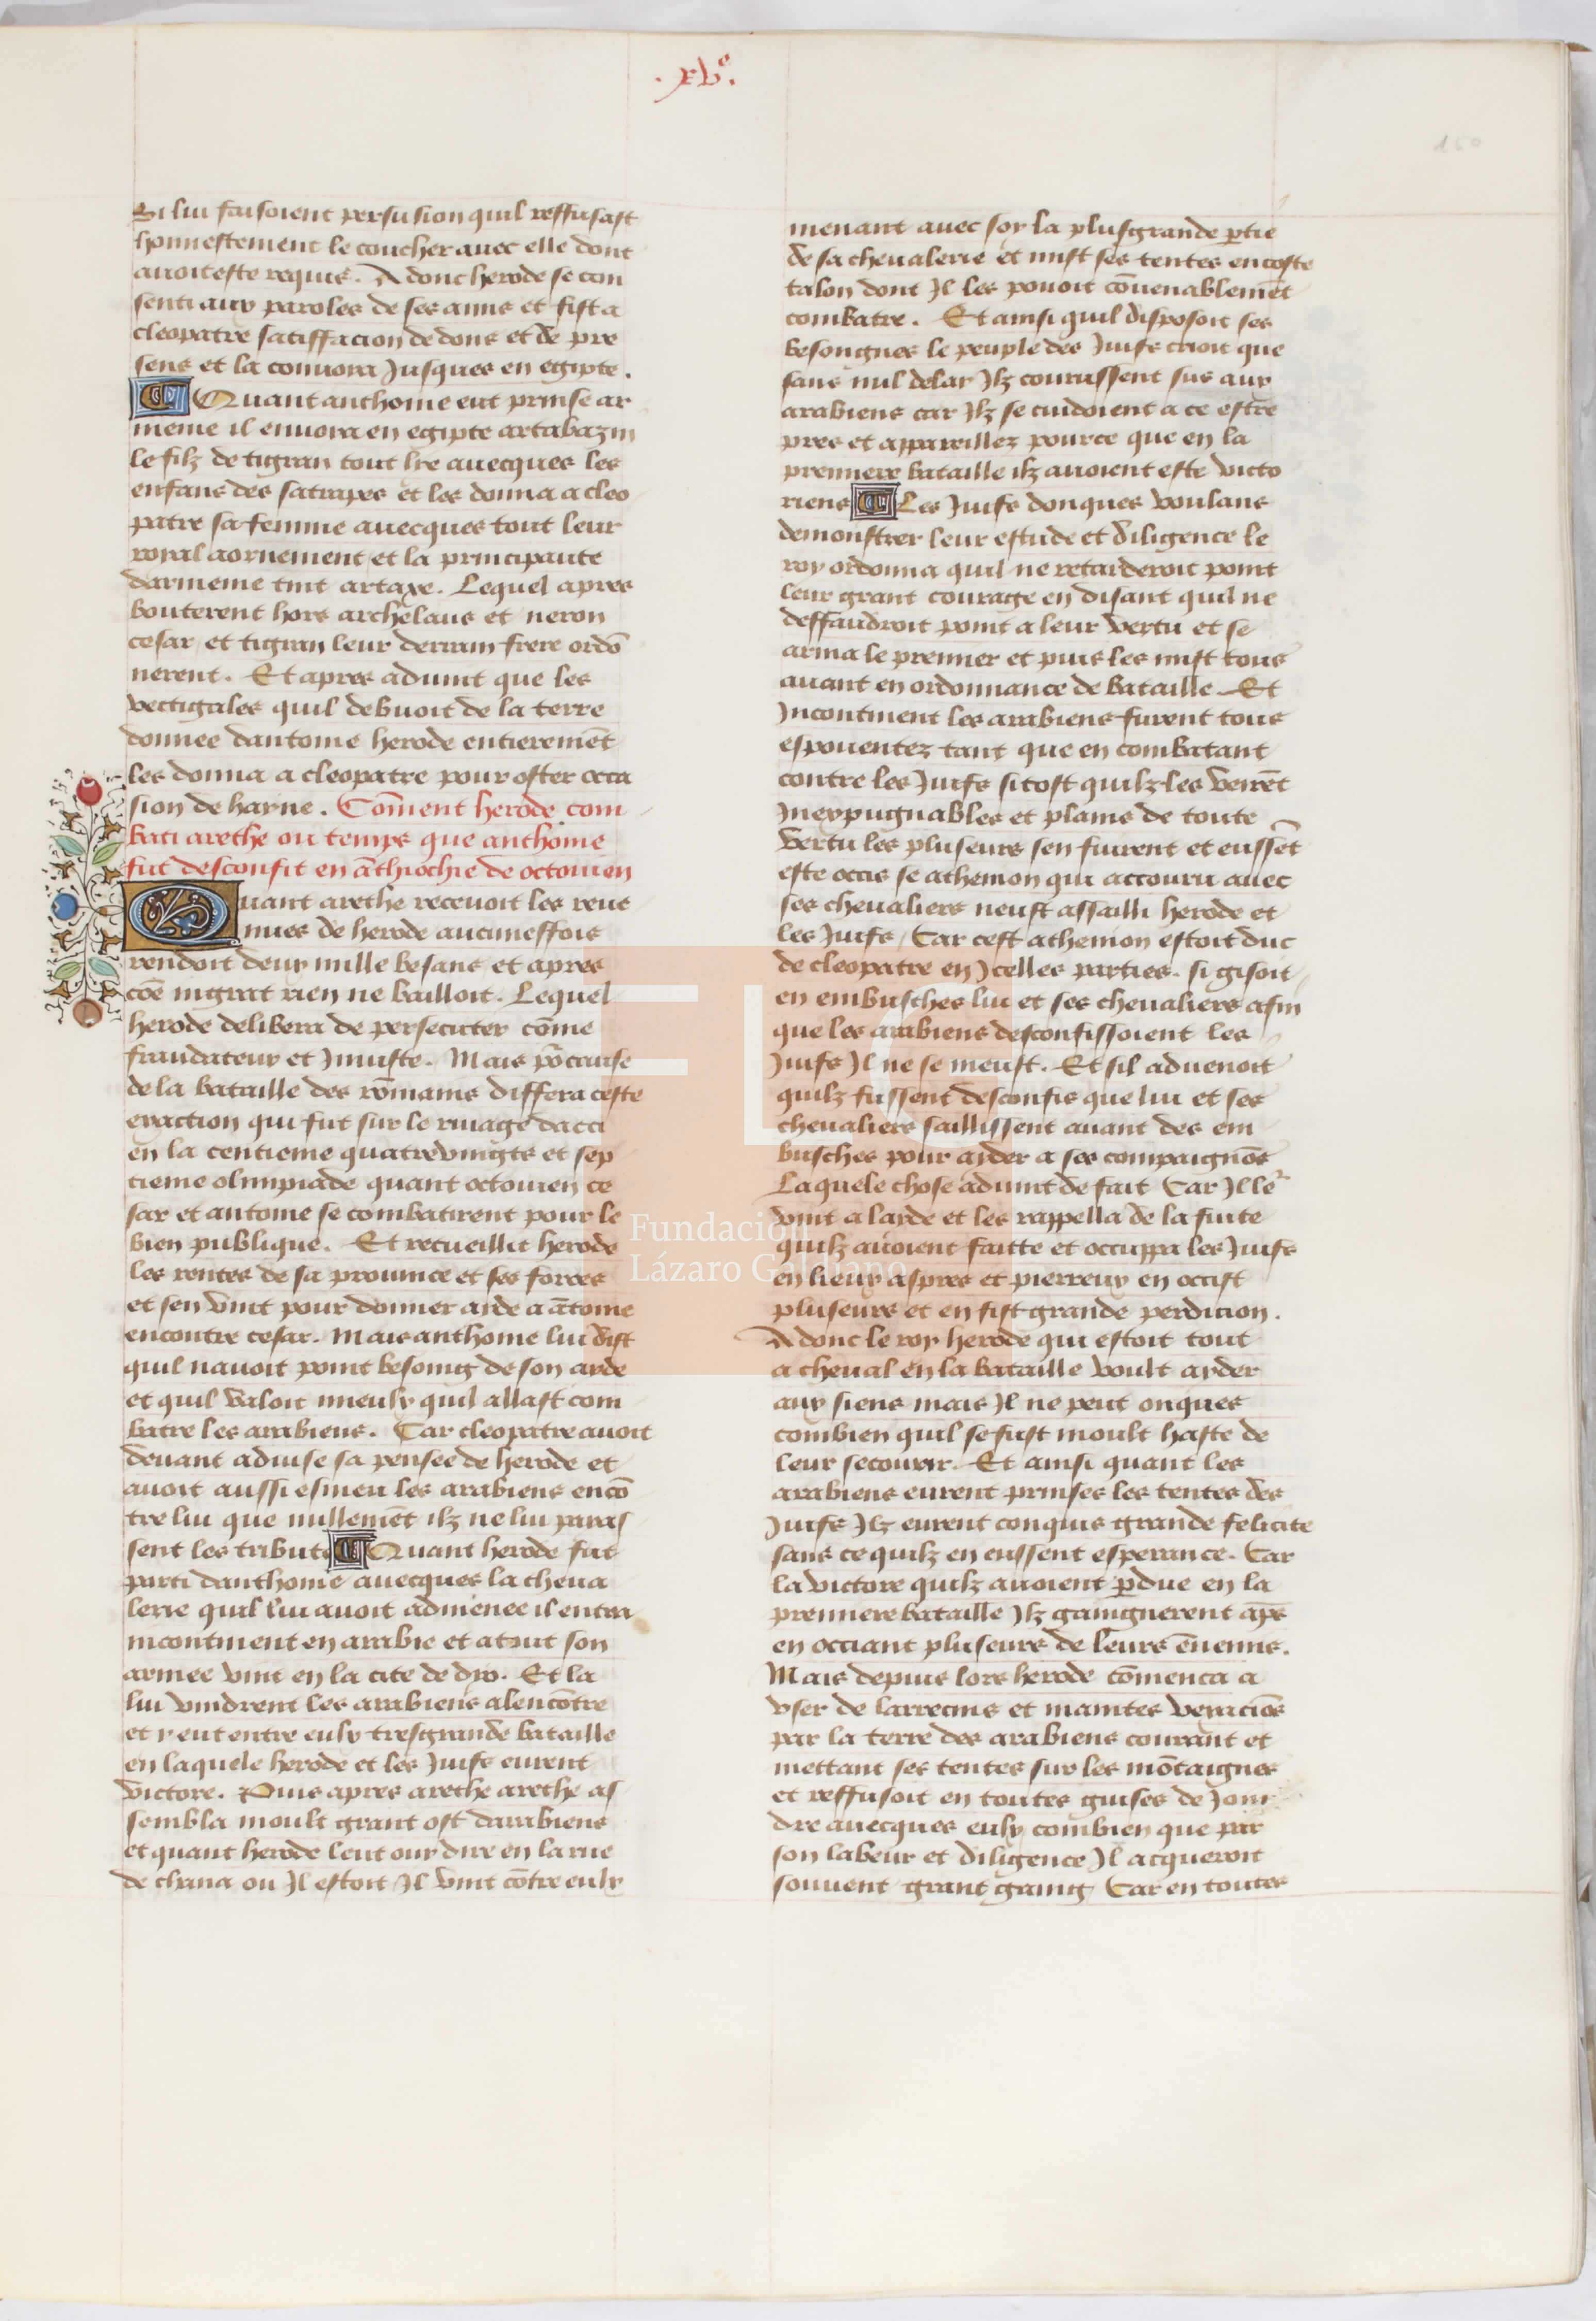 .xvᵉ.
160
Si lui faisoient persusion quil reffusast
honnestement le coucher avec elle dont
avoit este requis. Adonc herode se con
senti aux paroles de ses amis et fist a
cleopatre satiffacion de dons et de pre
sens et la convoia Jusques en egipte.
Quant anthoine eut prinse ar
menie il envoia en egipte artabazin
le filz de tigran tout lye avecques les
enfans des satrapes et les donna a cleo
patre sa femme avecques tout leur
roial aornement et la principaute
darmenie tint artaxe. Lequel apres
bouterent hors archelaus et neron
cesar et tigran leur derrain frere ordō
nerent. Et apres advint que les
vectigales quil debvoit de la terre
donnee dantoine herode entieremēt
les donna a cleopatre pour oster occa
sion de hayne. Cōment herode com
bati arethe ou temps que anthoine
fut desconfit en āthiochie de octovien
Quant arethe recevoit les reve
nues de herode aucuneffois
rendoit deux mille besans et apres
cōe ingrat rien ne bailloit. Lequel
herode delibera de persecuter cōme
fraudateur et Iniuste. Mais pō cause
de la bataille des rōmains differa ceste
exaction qui fut sur le rivage dacci
en la centieme quatrevingts et sep
tieme olimpiade quant octovien ce
sar et antoine se combatirent pour le
bien publique. Et recueillit herode
les rentes de sa province et ses forces
et sen vint pour donner aide a ātoine
encontre cesar. Mais anthoine lui dist
quil navoit point besoing de son ayde
et quil valoit mieulx quil allast com
batre les arabiens. Car cleopatre avoit
devant advise sa pensee de herode et
avoit aussi esmeu les arabiens encō
tre lui que nullemēt ilz ne lui paias
sent les tributs Quant herode fut
parti danthoine avecques la cheva
lerie quil lui avoit admenee il entra
incontinent en arabie et a tout son
armee vint en la cite de dyo. Et la
lui vindrent les arabiens alencōtre
et y eut entre eulx tresgrande bataille
en laquele herode et les Juifs eurent
victore. Puis apres arethe arethe as
sembla moult grant ost darabiens
et quant herode leut ouy dire en la rue
de chana ou Il estoit Il vint cōtre eulx
menant avec soy la plusgrande ptie
de sa chevalerie et mist ses tentes en coste
talon dont Il les povoit cōvenablemēt
combatre. Et ainsi quil disposoit ses
besongnes le peuple des Juifs crioit que
sans nul delay Ilz courussent sus aux
arabiens car Ilz se cuidoient a ce estre
pres et appareillez pource que en la
premiere bataille ilz avoient este victo
riens Les Juifs donques voulans
demonstrer leur estude et diligence le
roy ordonna quil ne retarderoit point
leur grant courage en disant quil ne
deffaudroit point a leur vertu et se
arma le premier et puis les mist tous
avant en ordonnance de bataille. Et
Incontinent les arabiens furent tous
espouentez tant que en combatant
contre les Juifs sitost quilz les veirēt
Inexpugnables et plains de toute
vertu les pluseurs sen fuirent et eussēt
este occis se athemon qui accouru avec
ses chevaliers neust assailli herode et
les Juifs. Car cest athemon estoit duc
de cleopatre en Icelles parties. si gisoit
en embusches lui et ses chevaliers afin
que les arabiens desconfissoient les
Juifs Il ne se meust. Et sil advenoit
quilz fussent desconfis que lui et ses
chevaliers saillissent avant des em
busches pour aider a ses compaignōs
Laquele chose advint de fait Car Il le
vint a larde et les rappella de la fuite
quilz avoient faitte et occuppa les Juifs
en lieux aspres et pierreux en occist
pluseurs et en fist grande perdicion.
Adonc le roy herode qui estoit tout
a cheval en la bataille voult ayder
aux siens mais Il ne peut onques
combien quil se fust moult haste de
leur secourir. Et ainsi quant les
arabiens eurent prinses les tentes des
Juifs Ilz eurent conquis grande felicite
sans ce quilz en eussent esperance. Car
la victore quilz avoient pdue en la
premiere bataille Ilz gaingnerent aps
en occiant pluseurs de leurs ēnemis.
Mais depuis lors herode cōmenca a
user de larrecins et maintes vexaciōs
par la terre des arabiens courant et
mettant ses tentes sur les mōtaignes
et reffusoit en toutes guises de Join
dre avecques eulx combien que par
son labeur et diligence Il acqueroit
souvent grant gaing Car en toutes
Fundación
Lázaro Galdiano